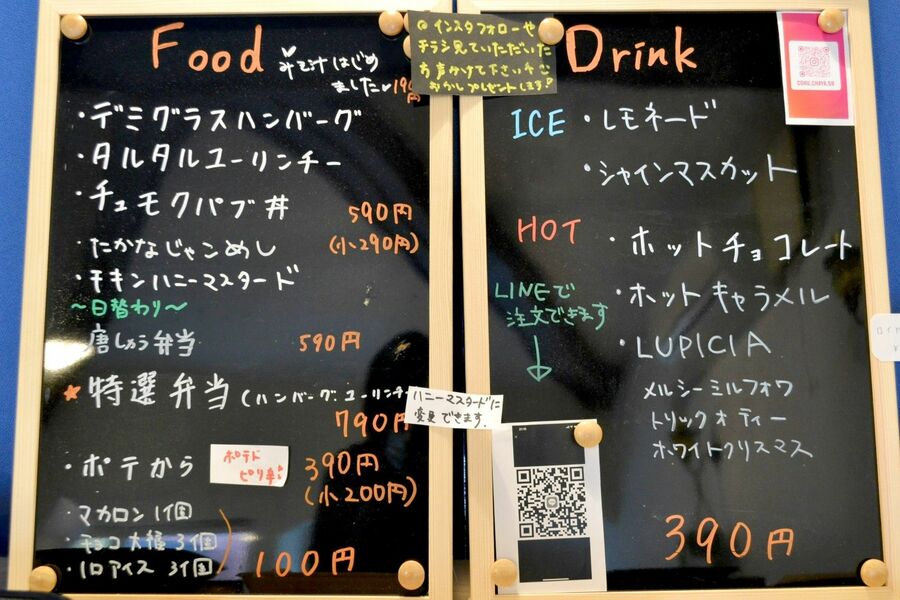 Food
みそ汁はじめ
ました
・デミグラスハンバーグ
・タルタルユーリンチー
・チュモクパブ丼 590円
・たかなじゃンめし (小290円)
・チキンハニーマスタード
〜日替わり〜
唐しゅう弁当 590円
★特選弁当(ハンバーグ、ユーリンチー
790円
ハニーマスタードに
変更できます.
・ポテから
ポテト
ピリ辛!
390円
(小200円)
・マカロン1個
・チョコ大福3個
・1口アイス 3個
100円
@インスタフォローや
チラシ見ていただいた
お声かけて下さい
おかしプレゼントします!
Drink
ICE ・レモネード
・シャインマスカット
HOT ・ホットチョコレート
・ホットキャラメル
・LUPICIA
メルシーミルフォワ
トリックオティー
ホワイトクリスマス
390円
LINEで
注文できます